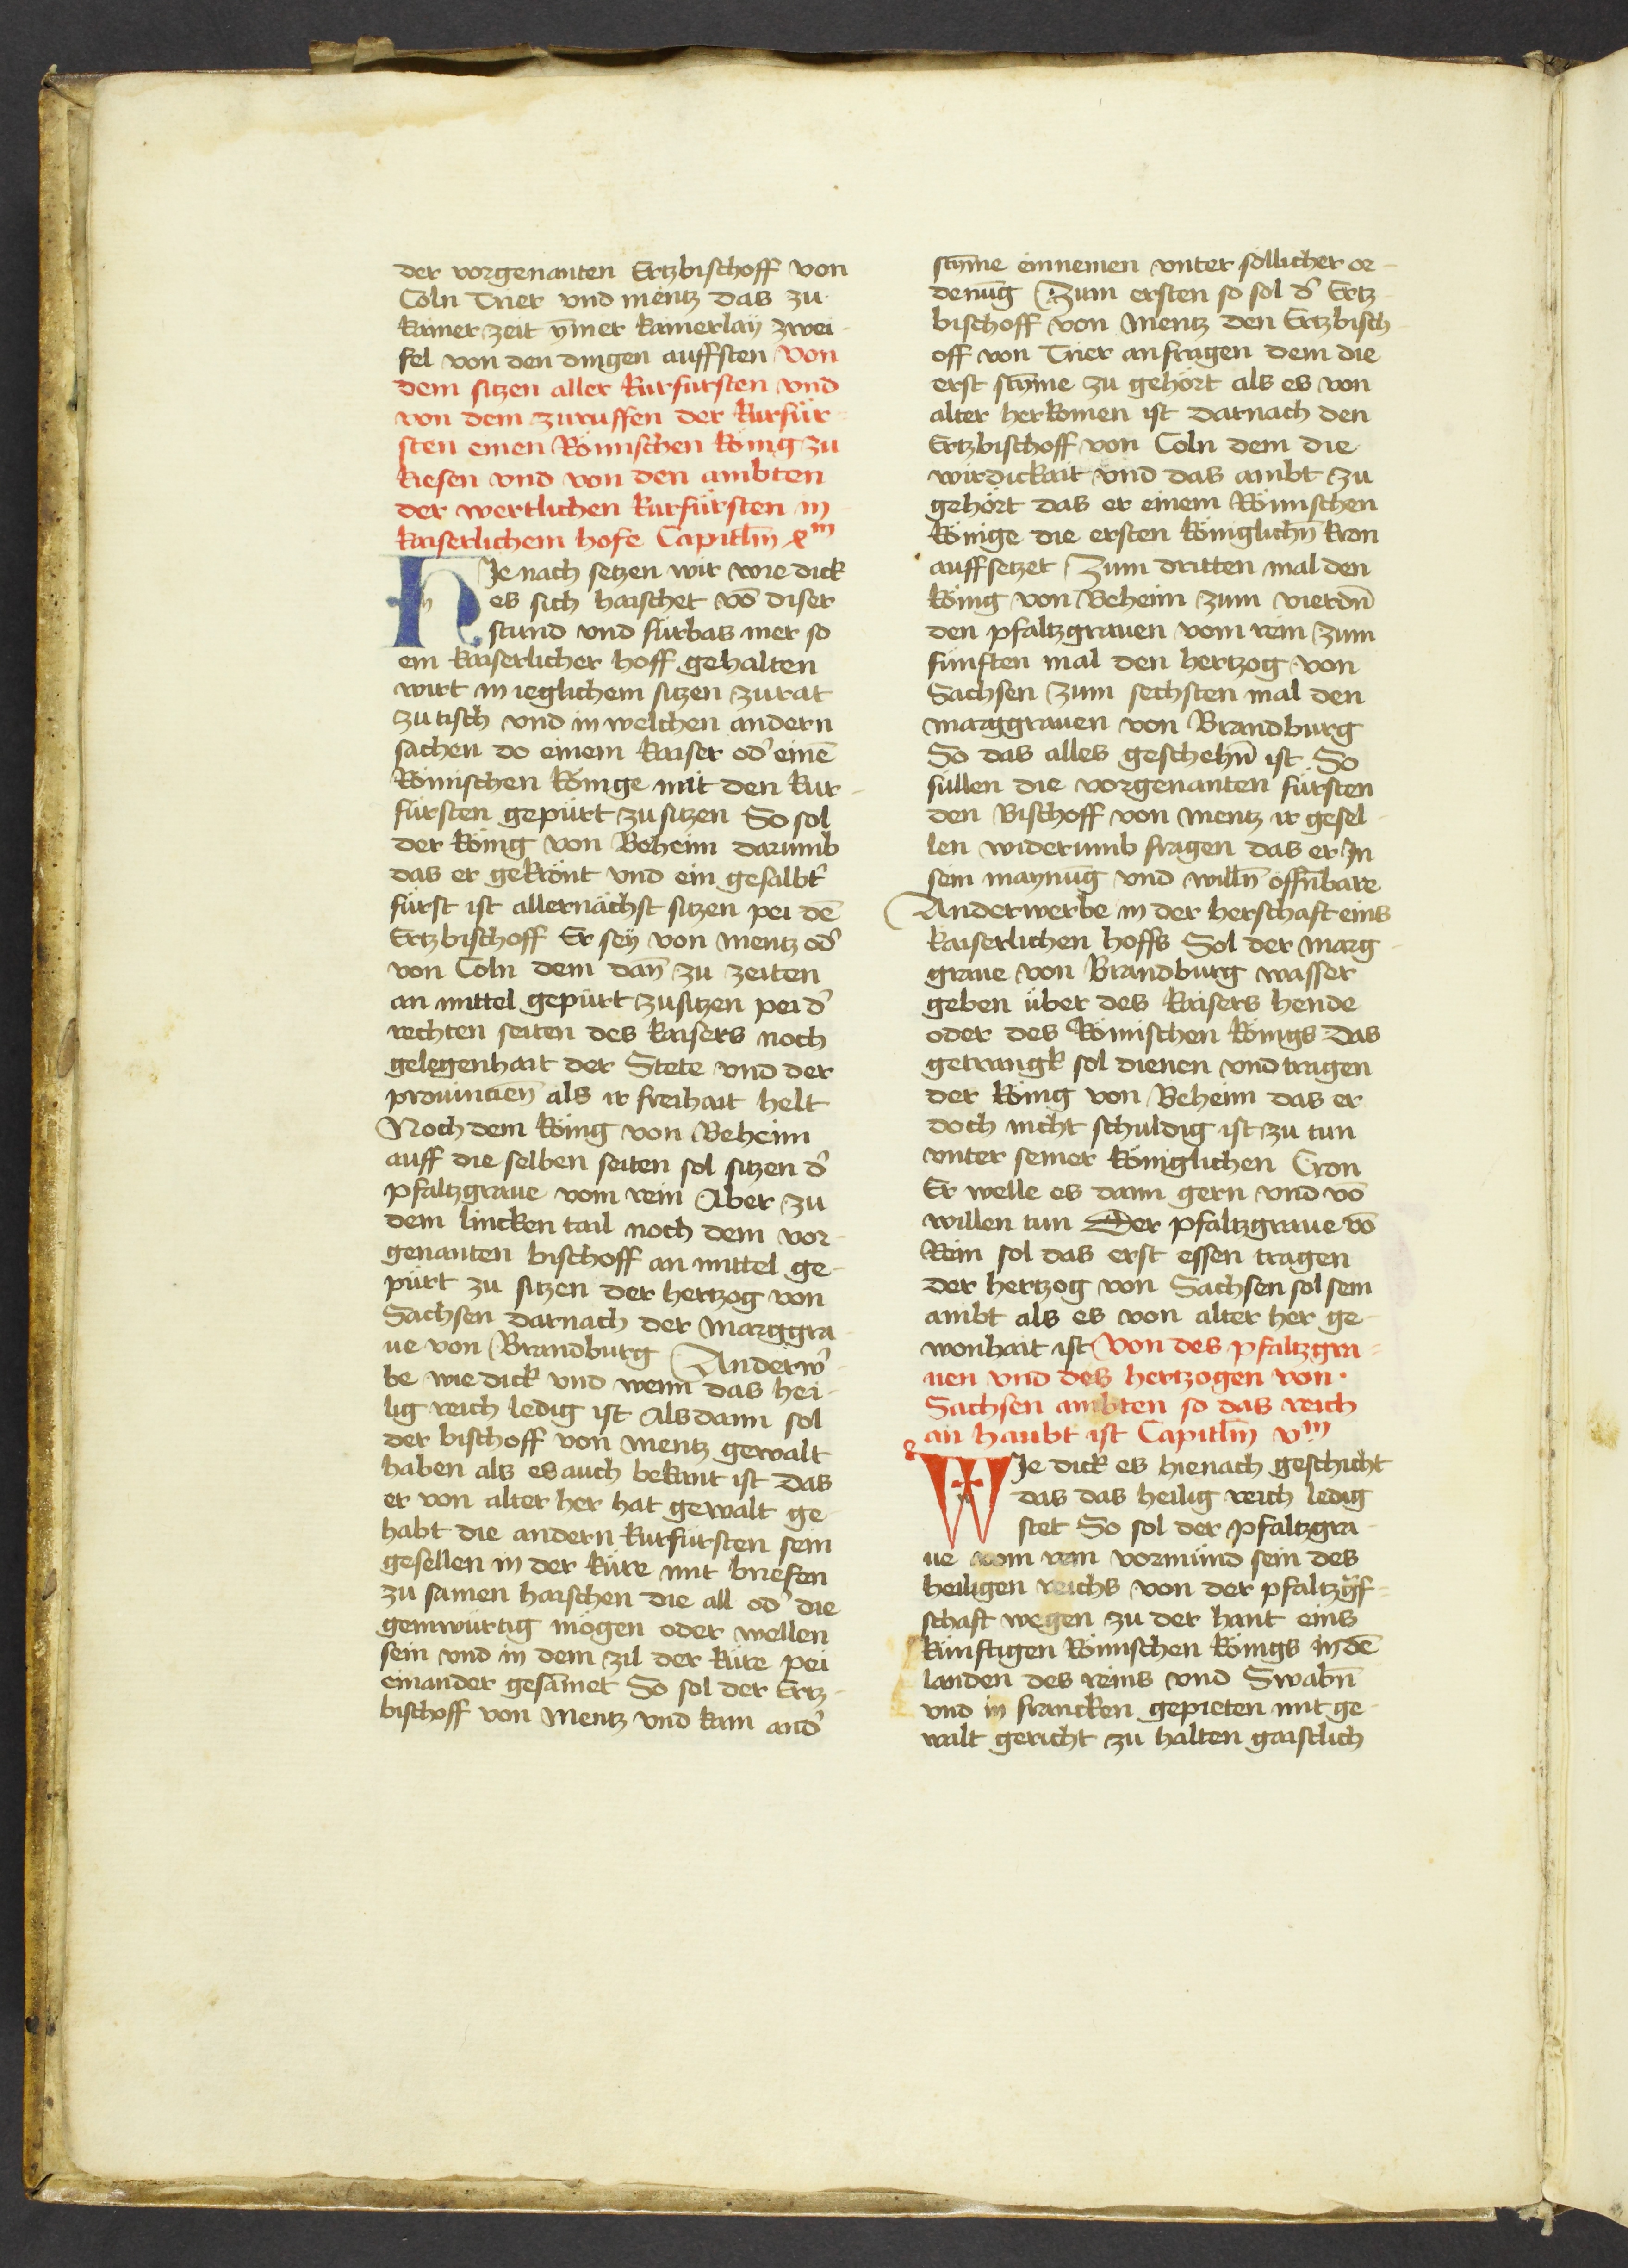 der vorgenanten Ertzbischoff von
Coln Trier vnd mentz das zu
kainer zeit ȳmer kainerlaÿ zwei-
fel von den dingen auffsten Von
dem sitzen aller kurfursten vnd
von dem zuruffen der kurfür-
sten einen Römischen König zu
kiesen vnd von den ambten
der wertlichen kurfürsten in
kaiserlichem hofe Capitl̄m
HJe nach setzen wir wie dick
es sich haischet vō diser
stund vnd fürbas mer so
ein kaiserlicher hoff gehalten
wirt in ieglichem sitzen zu rat
zu tisch vnd in welchen andern
sachen do einem kaiser od̾ einē
Römischen Könige mit den kur-
fürsten gepürt zu sitzen So sol
der König von Beheim darumb
das er gekrönt vnd ein gesalbt̾
fürst ist allernächst sitzen pei dē
Ertzbischoff Er seÿ von mentz od̾
von Coln dem dan̄ zu zeiten
an mittel gepürt zu sitzen pei d̾
rechten seiten des kaisers noch
gelegenhait der Stete vnd der
prouincien̄ als ir freihait helt
Noch dem König von Beheim
auff die selben seiten sol sitzen d̾
pfaltzgraue vom rein Aber zu
dem lincken tail noch dem vor-
genanten bischoff an mittel ge-
pürt zu sitzen der hertzog von
Sachsen darnach der marggra-
ue von Brandburg Anderw̾-
be wie dick vnd wenn das hei-
lig reich ledig ist Als dann sol
der bischoff von mentz gewalt
haben als es auch bekant ist das
er von alter her hat gewalt ge-
habt die andern kurfürsten sein
gesellen in der küre mit briefen
zu samen haischen die all od̾ die
genwürtig mögen oder wellen
sein vnd in dem zil der küre pei
einander gesāmet So sol der Ertz-
bischoff von mentz vnd kain and̾
stȳme einnemen vnter söllicher or-
denūg Zum ersten so sol d̾ Ertz-
bischoff von mentz den Ertzbisch-
off von Trier an fragen dem die
erst stȳme zu gehört als es von
alter herkomen ist darnach den
Ertzbischoff von Coln dem die
wirdickait vnd das ambt zu
gehört das er einem Römischen
Könige die ersten königlichn̄ kron
auffsetzet Zum dritten mal den
König von Beheim zum vierdn̄
den pfaltzgrauen vom rein zum
fünften mal den hertzog von
Sachsen zum sechsten mal den
marggrauen von Brandburg
So das alles geschehn̄ ist So
süllen die vorgenanten fürsten
den Bischoff von mentz ir gesel-
len widerumb fragen das er Jn
sein maynūg vnd willn̄ offn̄bare
Anderwerbe in der herschaft eins
kaiserlichen hoffs Sol der marg-
graue von Brandburg wasser
geben über des kaisers hende
oder des Römischen Königs Das
getrangk sol dienen vnd tragen
der König von Beheim das er
doch nicht schuldig ist zu tun
vnter seiner königlichen Cron
Er welle es dann gern vnd vō
willen tun Der pfaltzgraue vō
Rein sol das erst essen tragen
der hertzog von Sachsen sol sein
ambt als es von alter her ge-
wonhait ist Von des pfaltzgra-
uen vnd des hertzogen von
Sachsen ambten so das reich
an haubt ist Capitl̄m vm
WJe dick es hienach geschicht
das das heilig reich ledig
stet So sol der pfaltzgra-
ue vom rein vormünd sein des
heiligen reichs von der pfaltzgf-
schaft wegen zu der hant eins
künftigen Römischen Königs in dē
landen des reins vnd Swabn̄
vnd in francken gepieten mit ge-
walt gericht zu halten gaistlich